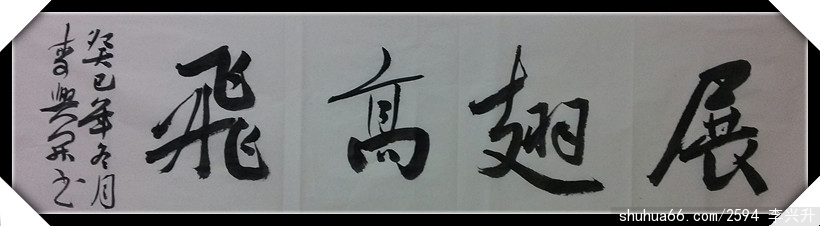 展翅高飛
癸巳年冬月
李興升书
shuhua66.com/2594 李兴升